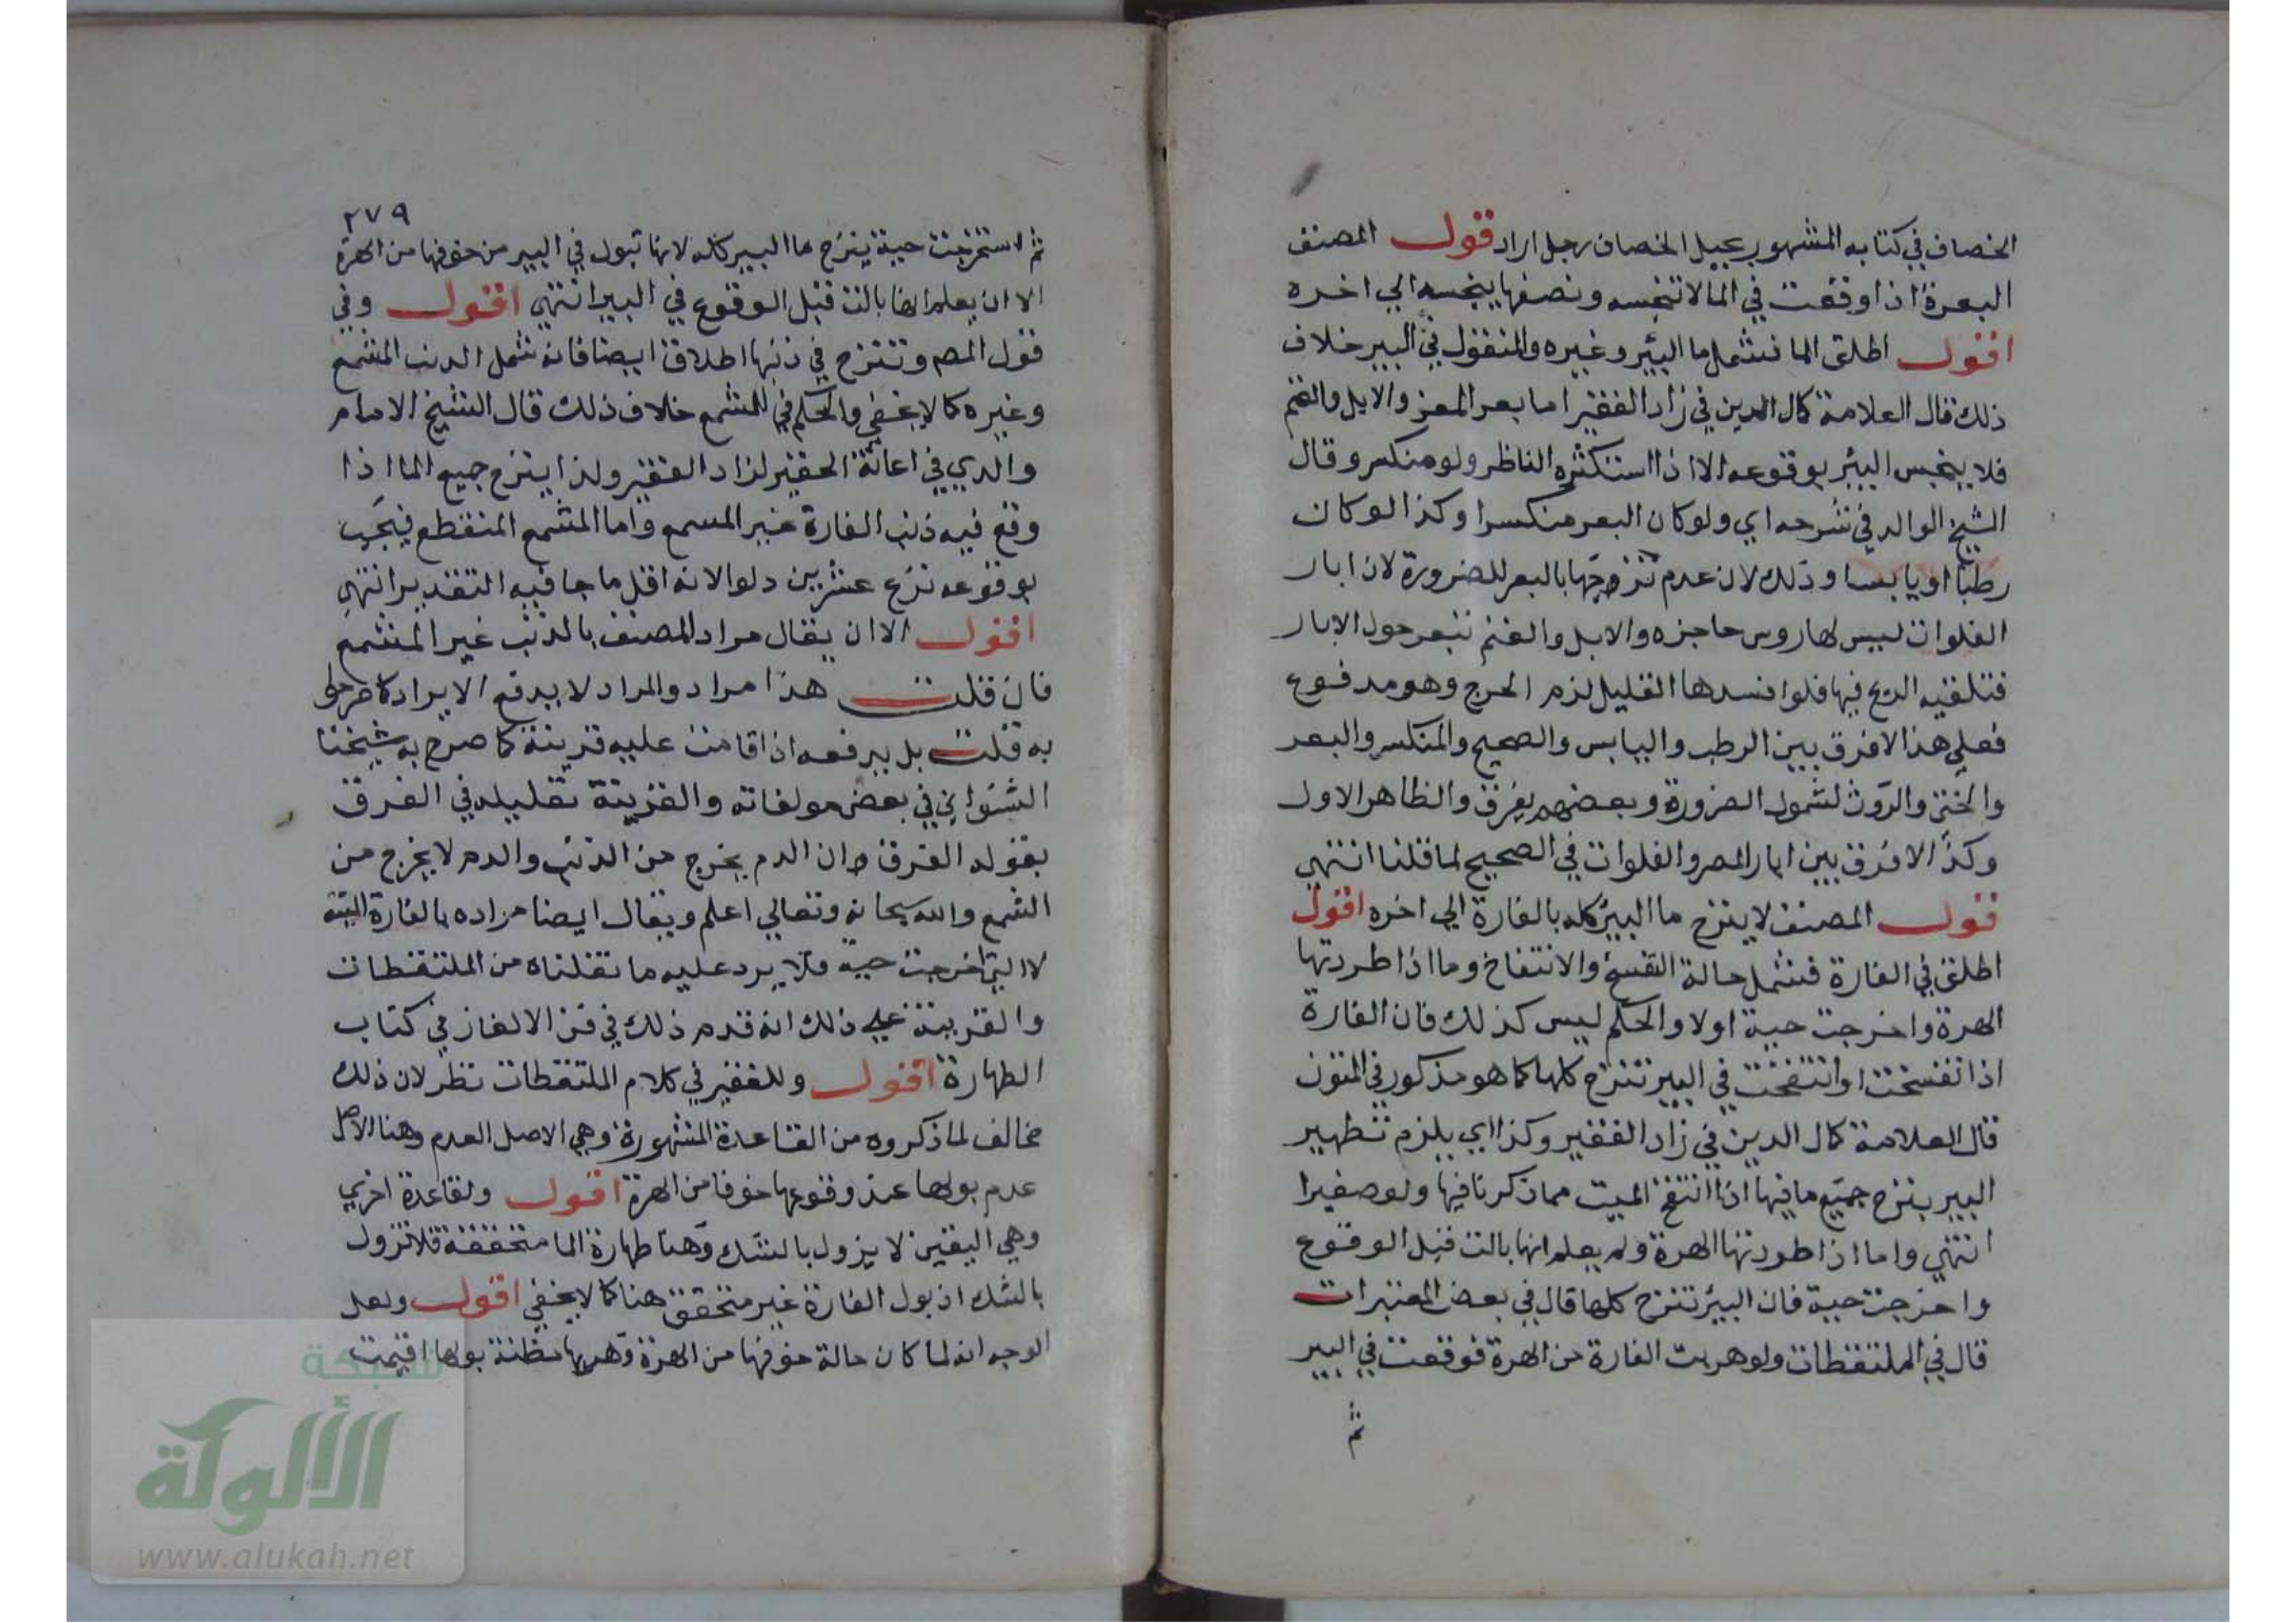 الخصاف في كتابه المشهور بحيل الخصاف رجل اراد قول المصنف
البعرة اذا وقعت في الما لا تنجسه ونصفها ينجسه الي اخره
اقول اطلق الما فشمل ما البئر وغيره والمنقول في البير خلاف
ذلك قال العلامة كمال الدين في زاد الفقير اما بعر المعز والابل والغنم
فلا ينجس البئر بوقوعه الا اذا استكثره الناظر ولو منكسر وقال
الشيخ الوالد في شرحه اي ولو كان البعر منكسرا وكذا لو كان
رطبا او يابسا وذلك لان عدم نزحها بالبعر للضرورة لان ابار
الفلوات ليس لها روس حاجزه والابل والغنم تبعر حول الابار
فتلقيه الريح فيها فلو افسدها القليل لزم الحرج وهو مدفوع
فعلي هذا لا فرق بين الرطب واليابس والصحيح والمنكسر والبعر
والخثي والروث لشمول الضرورة وبعضهم يفرق والظاهر الاول
وكذا لا فرق بين ابار المصر والفلوات في الصحيح لما قلنا انتهي
قول المصنف لا ينزح ما البير كله بالفارة الي اخره اقول
اطلق في الفارة فشمل حالة التفسخ والانتفاخ وما اذا طردتها
الهرة واخرجت حية اولا والحكم ليس كذلك فان الفارة
اذا تفسخت او انتفخت في البير تنزح كلها كما هو مذكور في المتون
قال العلامة كمال الدين في زاد الفقير وكذا اي يلزم تطهير
البير بنزح جميع ما فيها اذا انتفخ الميت مما ذكرنا فيها ولو صغيرا
انتهي واما اذا طردتها الهرة ولم يعلم انها بالت قبل الوقوع
واخرجت حية فان البئر تنزح كلها قال في بعض المعتبرات
قال في الملتقطات ولو هربت الفارة من الهرة فوقعت في البير
ثم
٢٧٩
ثم استخرجت حية ينزح ما البير كله لانها تبول في البير من خوفها من الهرة
الا ان يعلم انها بالت قبل الوقوع في البير انتهي اقول وفي
قول المصـ وتنزح في ذنبها اطلاق ايضا فانه شمل الذنب المشمع
وغيره كما لا يخفي والحكم في المشمع خلاف ذلك قال الشيخ الامام
والدي في اعانة الحقير لزاد الفقير ولذا ينزح جميع الما اذا
وقع فيه ذنب الفارة غير المسمع واما المشمع المنقطع فيجب
بوقوعه نزح عشرين دلوا لانه اقل ما جا فيه التقدير انتهي
اقول الا ان يقال مراد المصنف بالذنب غير المشمع
فان قلت هذا مراد والمراد لا يدفع الايراد كما صرحوا
به قلت بل يرفعه اذا قامت عليه قرينة كما صرح به شيخنا
الشنواني في بعض مولفاته والقرينة تعليله في الفرق
بقوله الفرق ان الدم يخرج من الذنب والدم لا يخرج من
الشمع والله سبحانه وتعالي اعلم ويقال ايضا مراده بالفارة الميتة
لا التي اخرجت حية فلا يرد عليه ما نقلناه من الملتقطات
والقرينة علي ذلك انه قدم ذلك في فن الالغاز في كتاب
الطهارة اقول وللفقير في كلام الملتقطات نظر لان ذلك
مخالف لما ذكروه من القاعدة المشهورة وهي الاصل العدم وهنا الاصل
عدم بولها عند وقوعها خوفا من الهرة اقول ولقاعدة اخري
وهي اليقين لا يزول بالشك وهنا طهارة الما متحققة فلا تزول
بالشك اذ بول الفارة غير متحقق هنا كما لا يخفي اقول ولعل
الوجه انه لما كان حالة خوفها من الهرة وهربها مظنة بولها اقيمت
شبكة
الألوكة
www.alukah.net